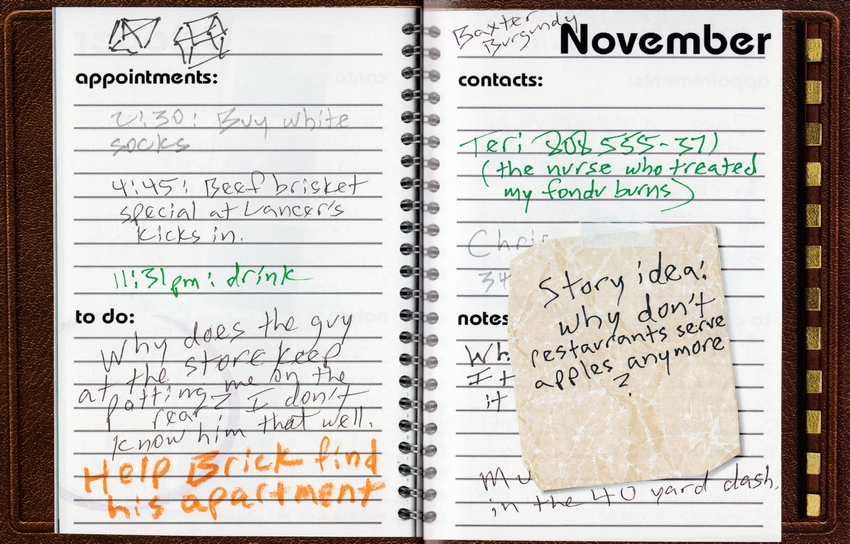 appointments:
2:30: Buy white
socks
4:45: Beef brisket
special at Lancer's
kicks in.
11:31pm: drink
to do:
Why does the guy
at the store keep
patting me on the
rear? I don't
know him that well.
Help Brick find
his apartment
Baxter
Burgundy
November
contacts:
Teri
(the nurse who treated
my fondu burns)
notes
Story idea:
why don't
restaurants serve
apples anymore
?
in the 40 yard dash.